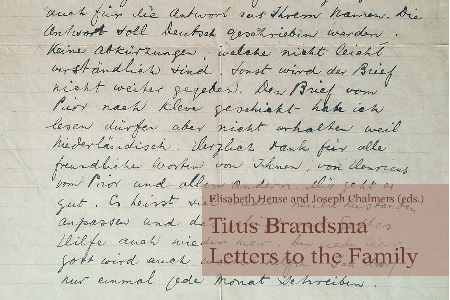 auch für die Antwort aus Ihrem Namen. Die
Antwort soll Deutsch geschrieben werden.
Keine Abkürzungen, welche nicht leicht
verständlich sind. Sonst wird der Brief
nicht weiter gegeben. Den Brief vom
Prior nach Kleve geschickt habe ich
lesen dürfen aber nicht erhalten weil
Niederländisch. Herzlich Dank für alle
freundliche Worten von Ihnen, von Henricus
vom Prior und allen andern. Mir geht es
gut. Es heisst sich
anpassen und
Hilfe auch wieder hier.
Gott wird auch
nur einmal jede Monat schreiben.
Elisabeth Hense and Joseph Chalmers (eds.)
Titus Brandsma
Letters to the Family